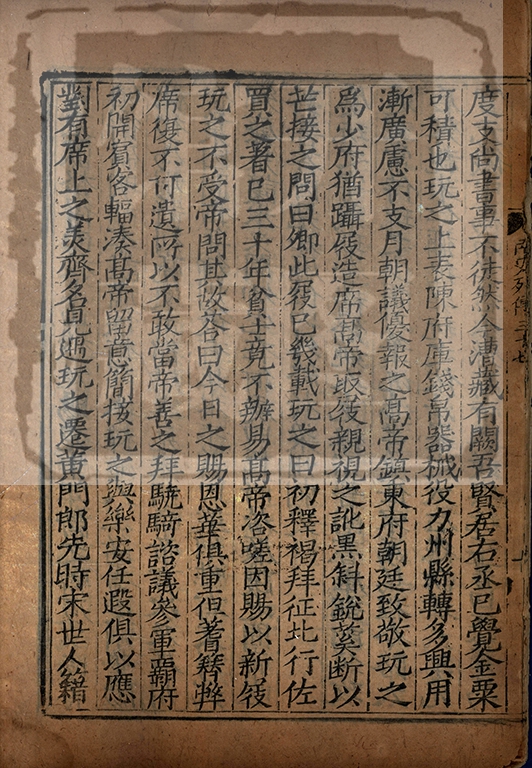 度支尚書事不徒然今漕藏有闕吾賢居右丞已覺金粟
可積也玩之上表陳府庫錢帛器械役力州縣轉多興用
漸廣慮不支月朝議優報之髙帝鎮東府朝廷致敬玩之
爲少府猶躡屐造席髙帝取屐親視之訛黒斜銳蒵斷以
芒接之問曰卿此屐已幾載玩之曰初釋褐拜征北行佐
買之著已三十年貧士竟不辦易髙帝咨嗟因賜以新屐
玩之不受帝問其故荅曰今日之賜恩華俱重但蓍簪弊
席復不可遺所以不敢當帝善之拜驍騎諮議參軍霸府
初開賓客輻湊髙帝留意簡接玩之與樂安任遐俱以應
對有席上之美齊名見遇玩之遷黄門郎先時宋世人籍
南史列傳三十七